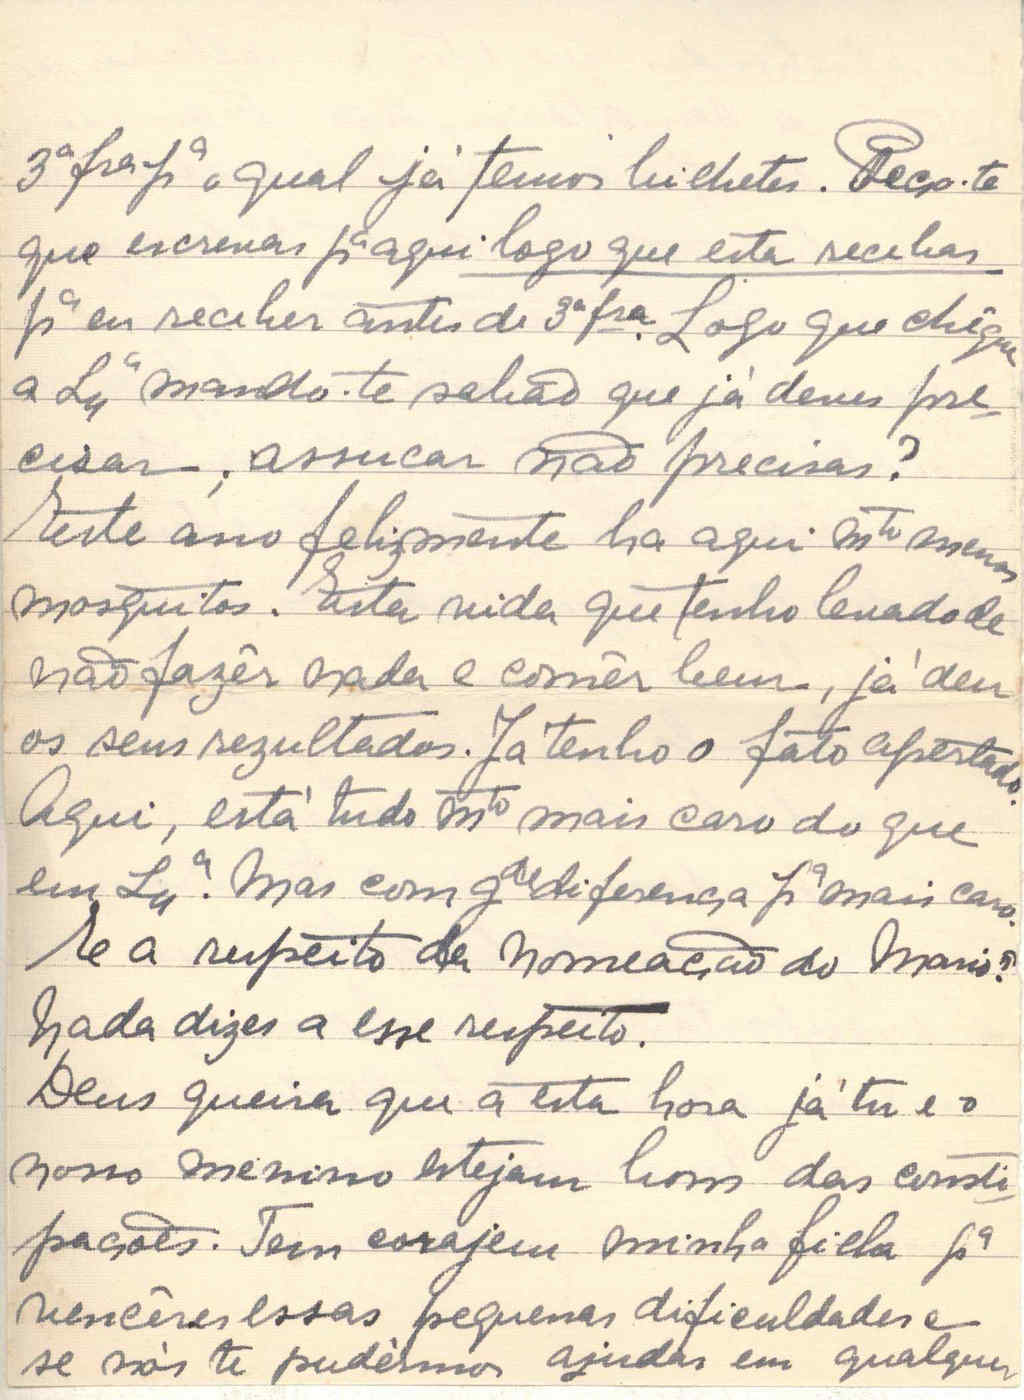 3ª fra pª o qual já temos bilhetes. Peço-te
que escrevas pª aqui logo que esta recebas
pª eu receber antes de 3ª fra. Logo que chegue
a Lxª mando-te sabão que já deves pre-
cisar; assucar não precisas?
Este ano felizmente ha aqui mto menos
mosquitos. Esta vida que tenho levado de
não fazêr nada e comêr bem, já deu
os seus rezultados. Já tenho o fato apertado.
Aqui, está tudo mto mais caro do que
em Lxª. Mas com gde diferença pª mais caro.
E a respeito da nomeação do Mario?
Nada dizes a esse respeito.
Deus queira que a esta hora já tu e o
nosso menino estejam bons das consti-
pações. Tem corajem minha filha pª
vencêres essas pequenas dificuldades e
se nós te pudérmos ajudar em qualquer